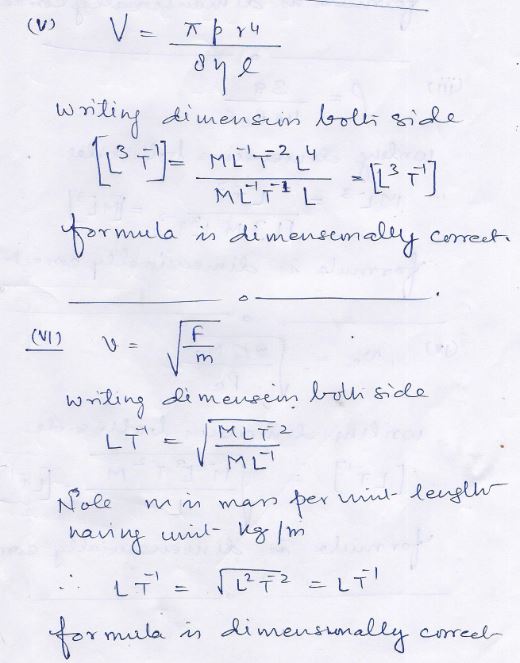 (V) V = π p r4 / 8 η l
writing dimension both side
[L³ T⁻¹] = ML⁻¹T⁻² L⁴ / ML⁻¹T⁻¹ L = [L³ T⁻¹]
formula is dimensionally correct.
(VI) υ = √(F / m)
writing dimension both side
LT⁻¹ = √(MLT⁻² / ML⁻¹)
Note m is mass per unit length
having unit kg/m
∴ LT⁻¹ = √(L²T⁻²) = LT⁻¹
formula is dimensionally correct